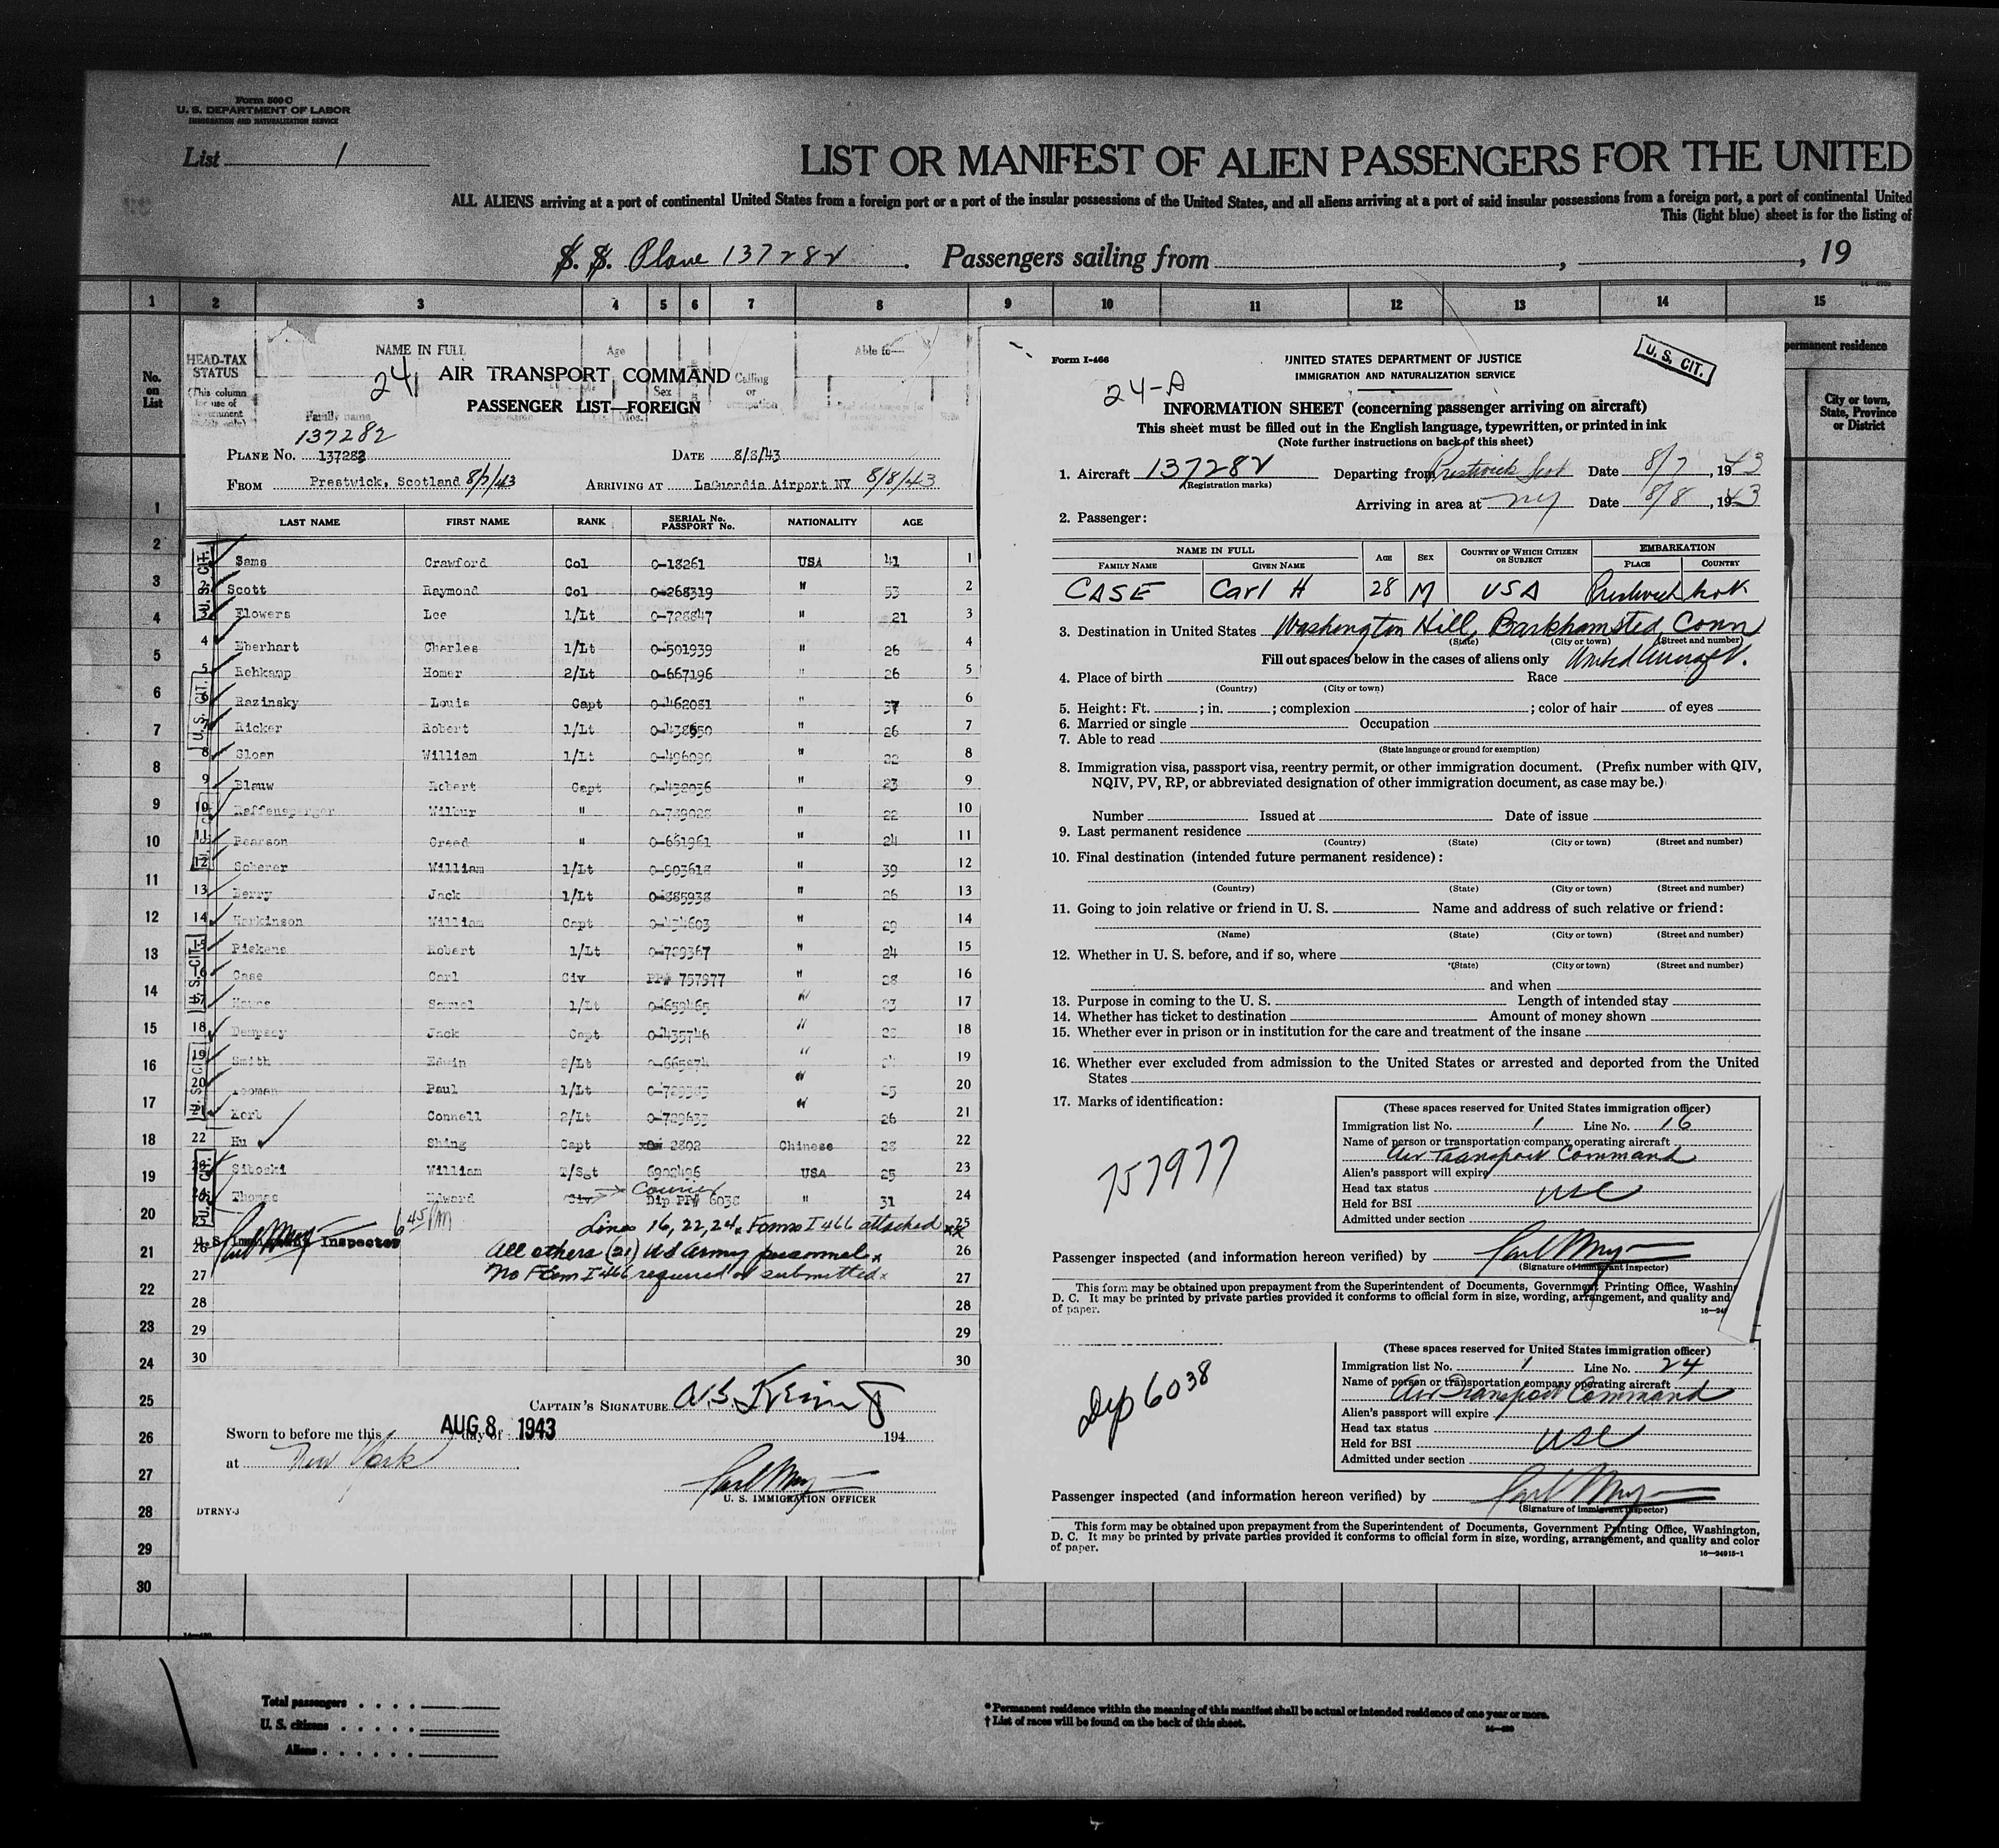 Form 500 C
U. S. DEPARTMENT OF LABOR
IMMIGRATION AND NATURALIZATION SERVICE
List 1
LIST OR MANIFEST OF ALIEN PASSENGERS FOR THE UNITED
ALL ALIENS arriving at a port of continental United States from a foreign port or a port of the insular possessions of the United States, and all aliens arriving at a port of said insular possessions from a foreign port, a port of continental United
This (light blue) sheet is for the listing of
S. S. Plane 137282 . Passengers sailing from , , 19
1 2 3 4 5 6 7 8 9 10 11 12 13 14 15
No. on List
HEAD-TAX STATUS
(This column for use of Government
NAME IN FULL
Family name
Age
Mos.
Sex
Calling or occupation
Able to—
permanent residence
City or town, State, Province or District
24
AIR TRANSPORT COMMAND
PASSENGER LIST—FOREIGN
137282
PLANE No. 137282 DATE 8/8/43
FROM Prestwick, Scotland 8/7/43 ARRIVING AT LaGuardia Airport NY 8/8/43
LAST NAME FIRST NAME RANK SERIAL No. PASSPORT No. NATIONALITY AGE
Sams Crawford Col 0-18261 USA 41 1
2 Scott Raymond Col 0-268319 " 53 2
3 Flowers Lee 1/Lt 0-728847 " 21 3
4 Eberhart Charles 1/Lt 0-501939 " 26 4
5 Rehkamp Homer 2/Lt 0-667196 " 26 5
6 Razinsky Louis Capt 0-462051 " 37 6
7 Ricker Robert 1/Lt " 26 7
8 Sloan William 1/Lt 0-496090 " 22 8
9 Blauw Robert Capt 0-432036 " 23 9
10 Raffensperger Wilbur " " 22 10
11 Pearson Creed " 0-661961 " 24 11
12 Scherer William 1/Lt 0-903618 " 39 12
13 Berry Jack 1/Lt 0-885938 " 26 13
14 Harkinson William Capt " 29 14
15 Pickens Robert 1/Lt 0-729367 " 24 15
16 Case Carl Civ PP# 757977 " 28 16
17 1/Lt 0-659465 " 23 17
18 Dempsey Jack Capt 0-435746 " 18
19 Smith Edwin 2/Lt " 19
20 Paul 1/Lt " 25 20
21 Korb Connell 2/Lt 0-729633 " 26 21
22 Hu Shing Capt 2892 Chinese 28 22
23 Sitoski William T/Sgt 6902496 USA 25 23
24 Thomas Edward Civ Courier Dip PP# 6038 " 31 24
6 45 PM Lines 16, 22, 24, Forms I 466 attached 25
U.S. Immigrant Inspector
26 All others (21) US Army personnel 26
27 No Form I 466 required or submitted 27
28 28
29 29
30 30
CAPTAIN'S SIGNATURE
Sworn to before me this AUG 8 1943 day of 194
at New York
U. S. IMMIGRATION OFFICER
DTRNY-J
U. S. CIT.
U. S. CIT.
U. S. CIT.
U. S. CIT.
U. S. CIT.
Form I-466
UNITED STATES DEPARTMENT OF JUSTICE
IMMIGRATION AND NATURALIZATION SERVICE
U. S. CIT.
24-A
INFORMATION SHEET (concerning passenger arriving on aircraft)
This sheet must be filled out in the English language, typewritten, or printed in ink
(Note further instructions on back of this sheet)
1. Aircraft 137282 Departing from Prestwick Scot Date 8/7, 1943
(Registration marks)
Arriving in area at NY Date 8/8, 1943
2. Passenger:
NAME IN FULL AGE SEX COUNTRY OF WHICH CITIZEN OR SUBJECT EMBARKATION
FAMILY NAME GIVEN NAME PLACE COUNTRY
CASE Carl H 28 M USA Prestwick
3. Destination in United States Washington Hill, Barkhamsted Conn
(State) (City or town) (Street and number)
Fill out spaces below in the cases of aliens only United Aircraft.
4. Place of birth Race
(Country) (City or town)
5. Height: Ft. ; in. ; complexion ; color of hair of eyes
6. Married or single Occupation
7. Able to read
(State language or ground for exemption)
8. Immigration visa, passport visa, reentry permit, or other immigration document. (Prefix number with QIV,
NQIV, PV, RP, or abbreviated designation of other immigration document, as case may be.)
Number Issued at Date of issue
9. Last permanent residence
(Country) (State) (City or town) (Street and number)
10. Final destination (intended future permanent residence):
(Country) (State) (City or town) (Street and number)
11. Going to join relative or friend in U. S. Name and address of such relative or friend:
(Name) (State) (City or town) (Street and number)
12. Whether in U. S. before, and if so, where
(State) (City or town) (Street and number)
and when
13. Purpose in coming to the U. S. Length of intended stay
14. Whether has ticket to destination Amount of money shown
15. Whether ever in prison or in institution for the care and treatment of the insane
16. Whether ever excluded from admission to the United States or arrested and deported from the United
States
17. Marks of identification:
757977
(These spaces reserved for United States immigration officer)
Immigration list No. 1 Line No. 16
Name of person or transportation company operating aircraft
Air Transport Command
Alien's passport will expire
Head tax status USC
Held for BSI
Admitted under section
Passenger inspected (and information hereon verified) by
(Signature of immigrant inspector)
This form may be obtained upon prepayment from the Superintendent of Documents, Government Printing Office, Washin
D. C. It may be printed by private parties provided it conforms to official form in size, wording, arrangement, and quality and
of paper.
Dip 6038
(These spaces reserved for United States immigration officer)
Immigration list No. 1 Line No. 24
Name of person or transportation company operating aircraft
Air Transport Command
Alien's passport will expire
Head tax status USC
Held for BSI
Admitted under section
Passenger inspected (and information hereon verified) by
(Signature of immigrant inspector)
This form may be obtained upon prepayment from the Superintendent of Documents, Government Printing Office, Washington,
D. C. It may be printed by private parties provided it conforms to official form in size, wording, arrangement, and quality and color
of paper.
16—24915-1
1
2
3
4
5
6
7
8
9
10
11
12
13
14
15
16
17
18
19
20
21
22
23
24
25
26
27
28
29
30
Total passengers
U. S. citizens
Aliens
* Permanent residence within the meaning of this manifest shall be actual or intended residence of one year or more.
† List of races will be found on the back of this sheet.